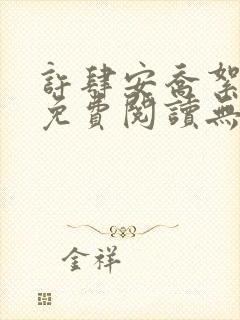 許肆安喬絮
免費閱讀無
金祥